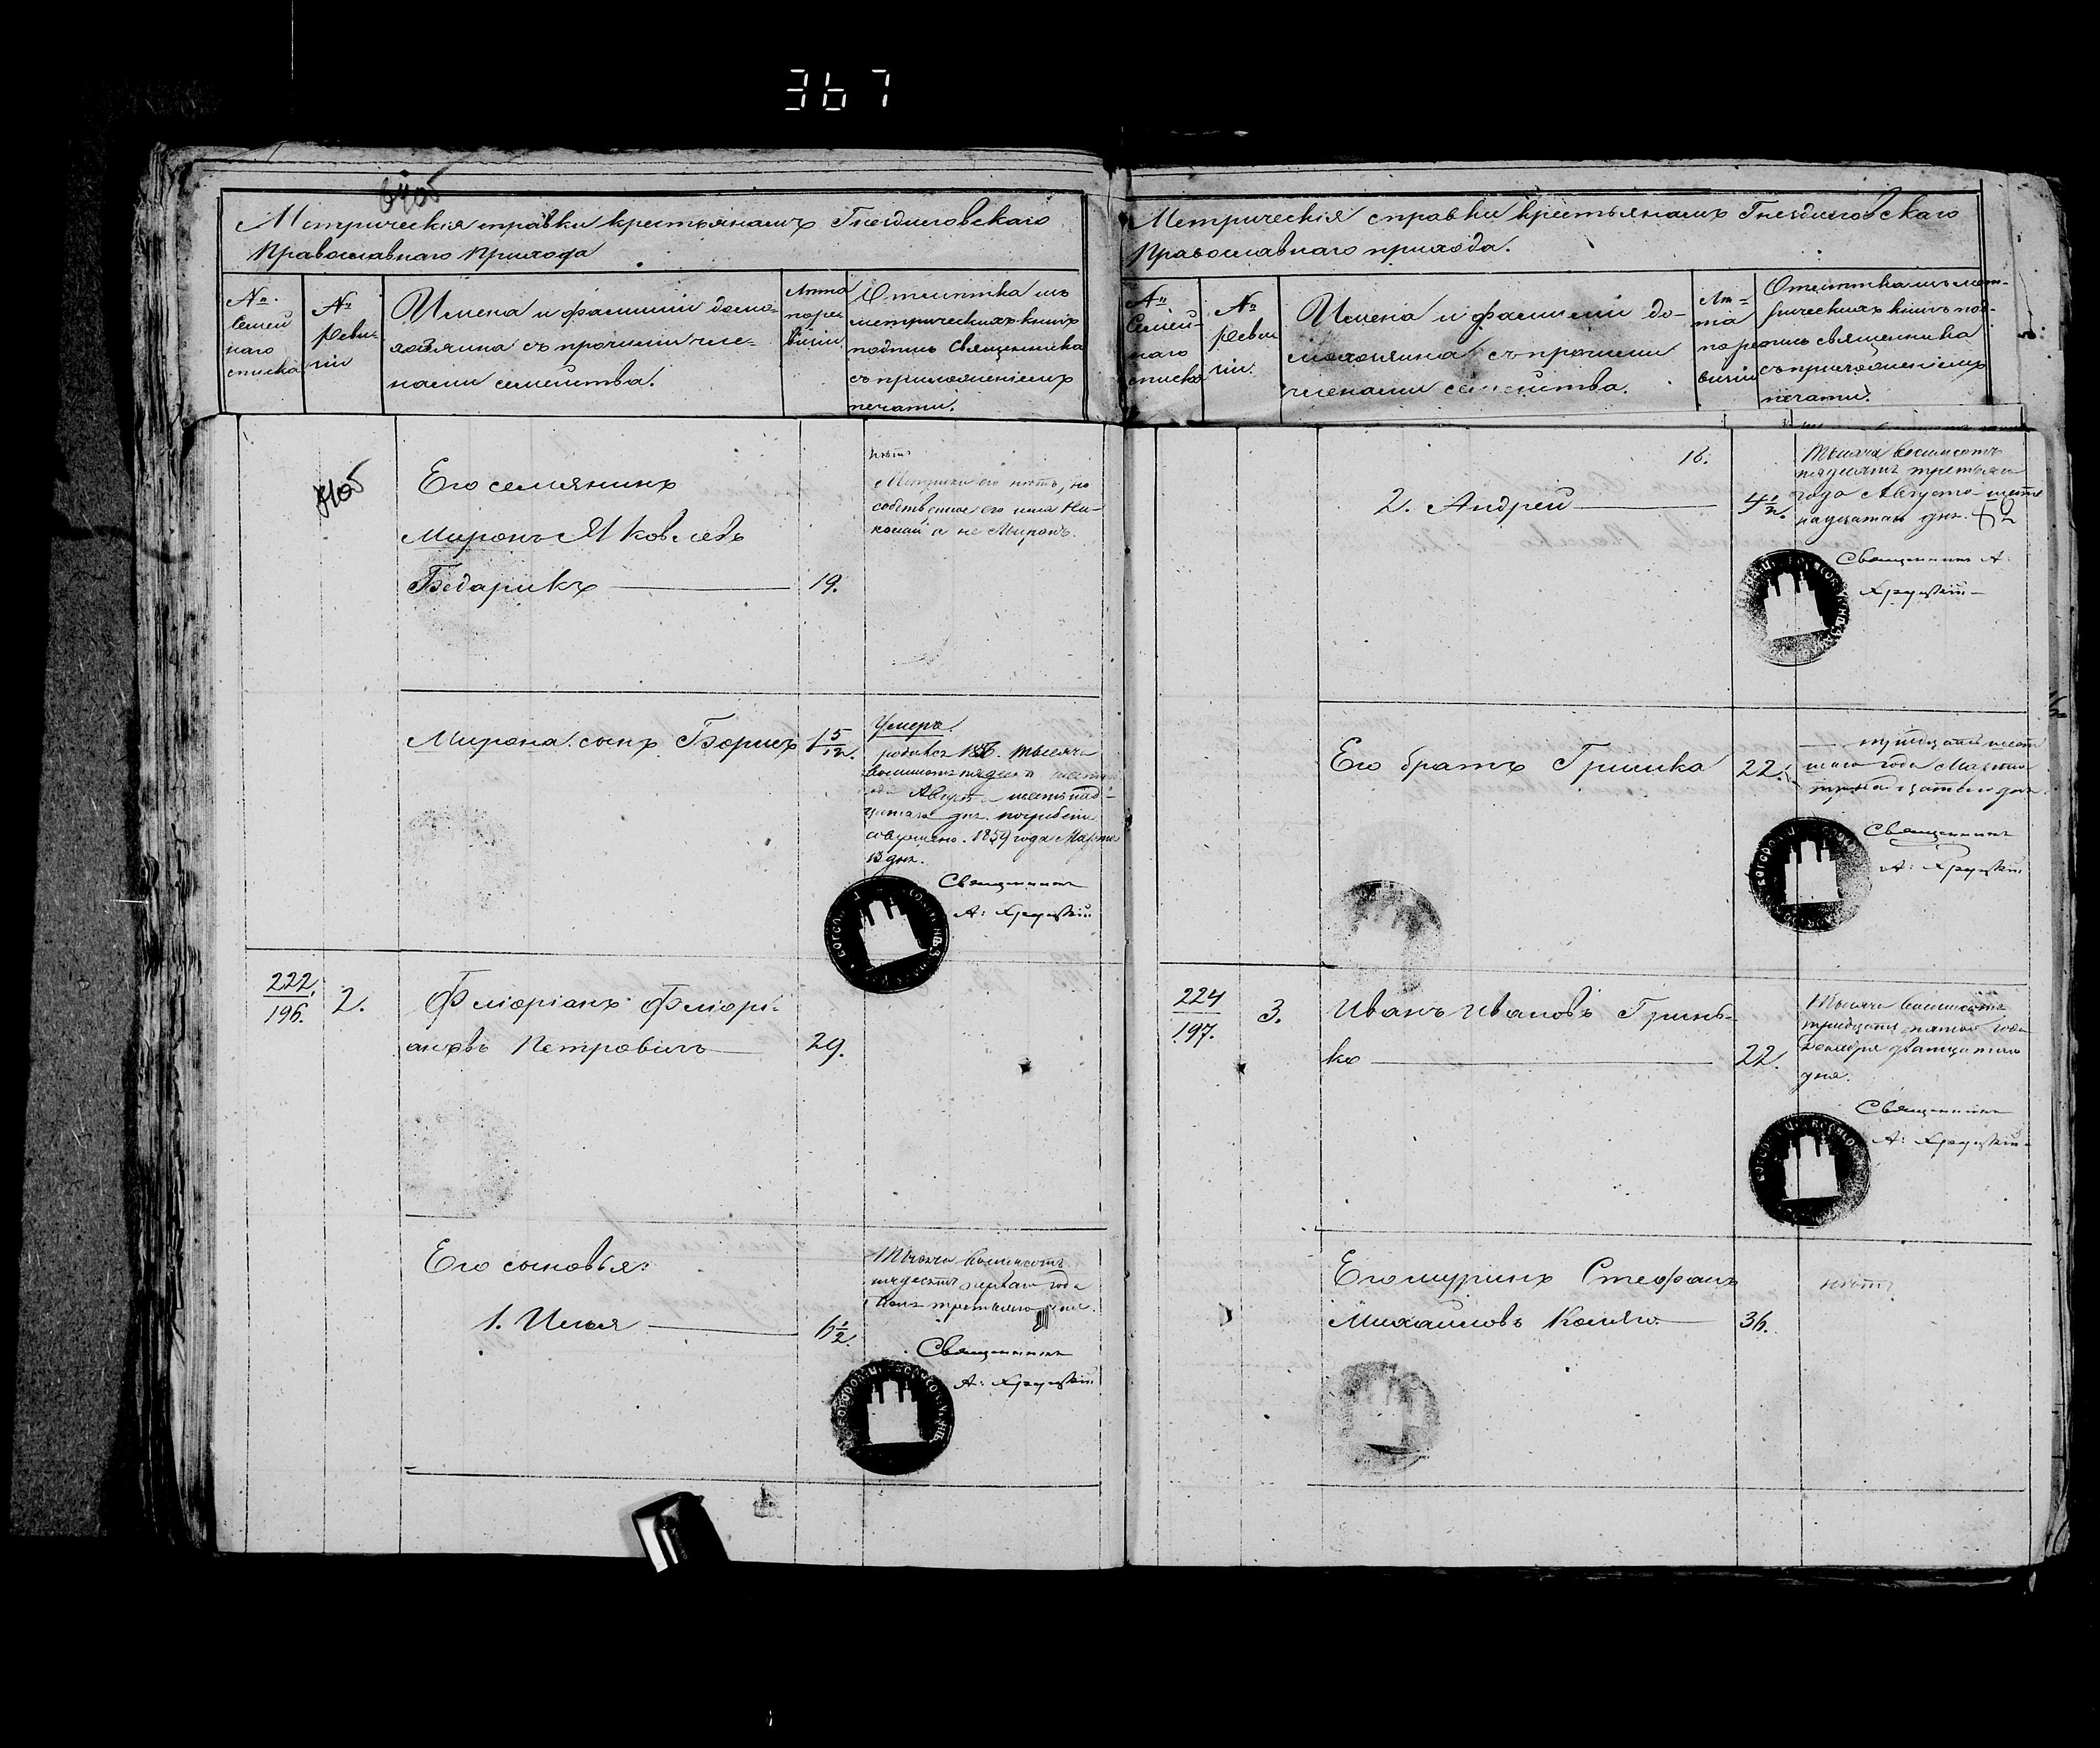 367
Метрическія справки крестьянамъ Гнездиловскаго
Православнаго Прихода
№
Семей
наго
списка
№
Реви-
зіи
Имена и фамиліи домо-
хозяина съ прочими чле-
нами семейства.
Лета
по ре
визіи
Отметка изъ
метрическихъ книгъ
подпись Священника
съ приложеніемъ
печати.
Его семянинъ
Миронъ Яковлевъ
Бедарикъ
19.
нетъ
Метрики его нетъ, но
собственное его имя Ни-
колай а не Миронъ.
Мирона сынъ Борисъ
1 5/12.
Умеръ.
родился тысяча
восемьсотъ
года Августа шестнад-
цатаго дня. погребеніе
совершено. 1859 года Марта
13 дня.
Священникъ
А:
222.
196.
2.
Флоріанъ Флорі-
ановъ Петровичъ
29.
Его сыновья:
1. Илья
6 1/2.
Тысяча восемьсотъ
пядесятъ перваго года
третьяго дня.
Священникъ
А:
Метрическія справки крестьянамъ Гнездиловскаго
Православнаго прихода.
№
Семей-
наго
списка
№
Реви
зіи.
Имена и фамиліи до-
мохозяина съ прочими
членами семейства.
Ле-
та
по ре
визіи
Отметка изъ мет-
рическихъ книгъ под-
пись священника
съ приложеніемъ
печати.
18.
2. Андрей
4 1/2.
Тысяча восемьсотъ
пядесятъ третьяго
года Августа шест
надцатаго дня.
Священникъ А:
Его братъ Гришка
22.
тридцать шест
таго года Марта
тринадцатаго дня.
Священникъ
А:
224
197.
3.
Иванъ Ивановъ Гринь-
ко
22.
Тысяча восемьсотъ
тридцать пятаго года
Декабря двадцатаго
дня.
Священникъ
А:
Его шуринъ Стефанъ
Михайловъ
36.
нетъ